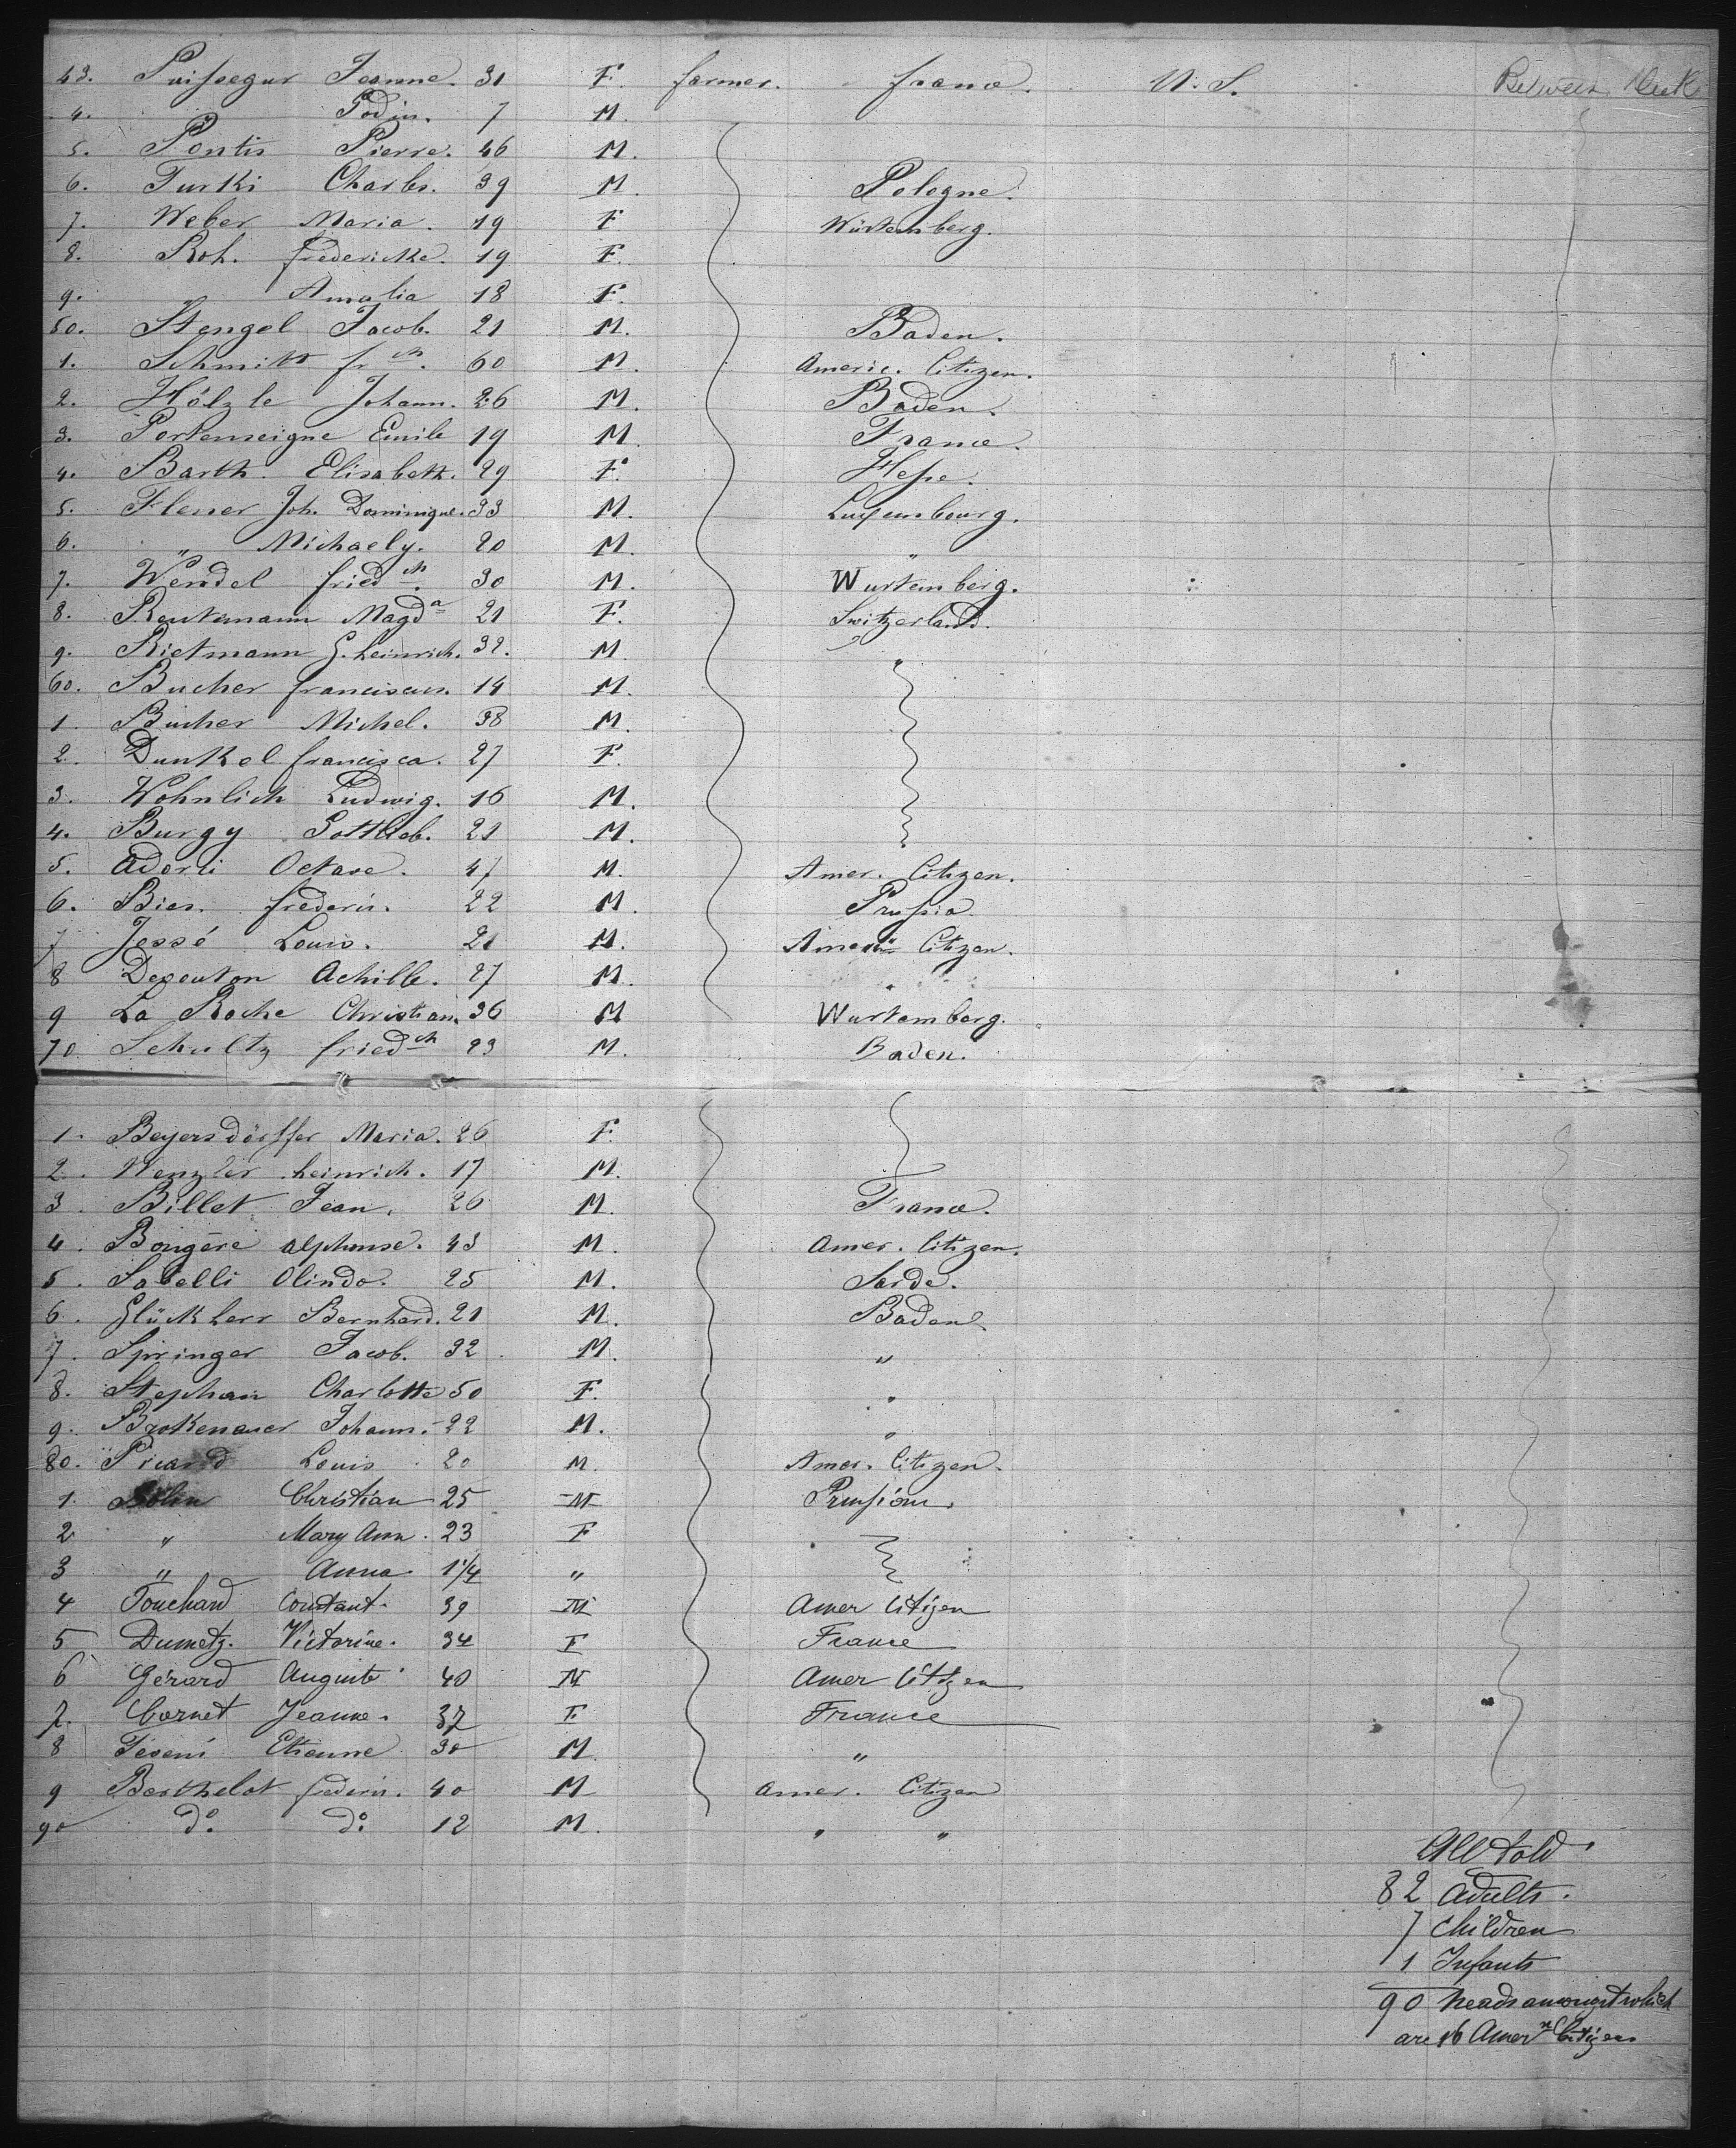 43. Puissegur Jeanne. 31 F. farmer. france. U. S. Between Deck
4. " 7 M.
5. Pontis Pierre. 46 M.
6. Turki Charles. 39 M. Pologne.
7. Weber Maria. 19 F Würtemberg.
8. Roh. frederike. 19 F.
9. " Amalia 18 F.
50. Stengel Jacob. 21 M. Baden.
1. Schmitt frch. 60 M. Americ. Citizen.
2. Hölzle Johann. 26 M. Baden.
3. Portenseigne Emile 19 M. France.
4. Barth. Elisabeth. 29 F. Hesse.
5. Flener Joh. Dominique. 33 M. Luxembourg.
6. " Michaely. 20 M. "
7. Wendel friedch. 30 M. Wurtemberg.
8. Rentemann Magda 21 F. Switzerland.
9. Rietmann G. heinrich. 32. M.
60. Bucher franciscus. 14 M.
1. Bucher Michel. 38 M.
2. Dunkel francisca. 27 F.
3. Wohnlich Ludwig. 16 M.
4. Burgy Gottlieb. 21 M.
5. Adorli Octave. 47 M. Amer. Citizen.
6. Bies. frederic. 22 M. Prussia
7 Jessé Louis. 21 M. Americ Citizen.
8 Achille. 27 M. "
9 La Roche Christian. 36 M Wurtemberg.
70 Schultz friedch 23 M. Baden.
1. Beyersdörffer Maria. 26 F.
2. Wenzler heinrich. 17 M.
3. Billet Jean. 26 M. France.
4. Bongère alphonse. 43 M. Amer. Citizen.
5. Sabelli Olindo. 25 M. Sarde.
6. Glückherr Bernhard. 21 M. Baden
7. Springer Jacob. 32. M. "
8. Stephan Charlotte 50 F. "
9. Brokenauer Johann. 22 M. "
80. Picard Louis 20 M. Amer. Citizen.
1. Bohn Christian 25 M Prussian.
2 " Mary Ann. 23 F
3 " Anna 1 1/4 "
4 Touchard Constant. 39 M Amer Citizen
5 Dumetz. Victorine. 34 F France
6 Gérard Auguste 40 M Amer Citizen
7. Cornet Jeanne. 37 F. France
8 Etienne 30 M "
9 Berthelot frederic. 40 M Amer. Citizen
90 do. do. 12 M. " "
All told
82 Adults.
7 Children
1 Infants
90 heads amongst which
are 16 Amern Citizens